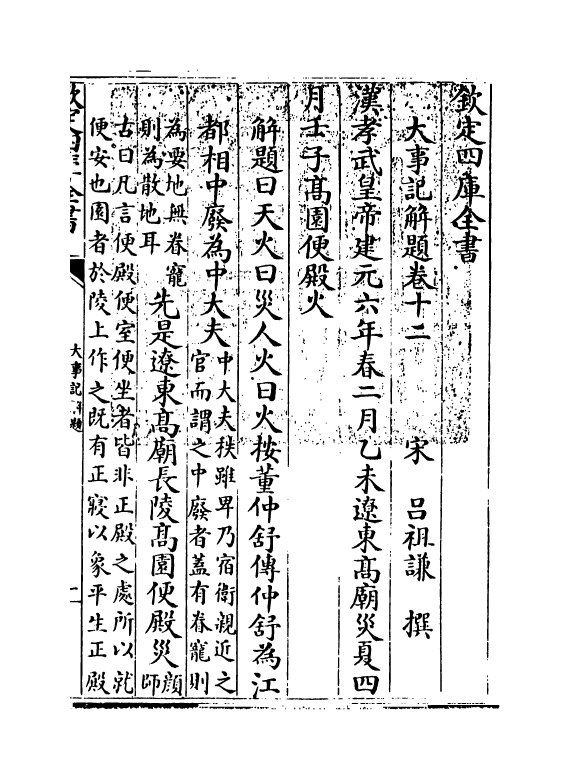 欽定四庫全書
大事記解題卷十二
宋 呂祖謙 撰
漢孝武皇帝建元六年春二月乙未遼東髙廟災夏四
月壬子髙園便殿火
解題曰天火曰災人火曰火按董仲舒傳仲舒為江
都相中廢為中大夫
中大夫秩雖畀乃宿衛親近之
官而謂之中廢者蓋有眷寵則
為要地無眷寵
則為散地耳
先是遼東髙廟長陵髙園便殿災
顔
師
古曰凡言便殿便室便坐者皆非正殿之處所以就
便安也園者於陵上作之既有正寢以象平生正殿
欽定四庫全書
大事記解題